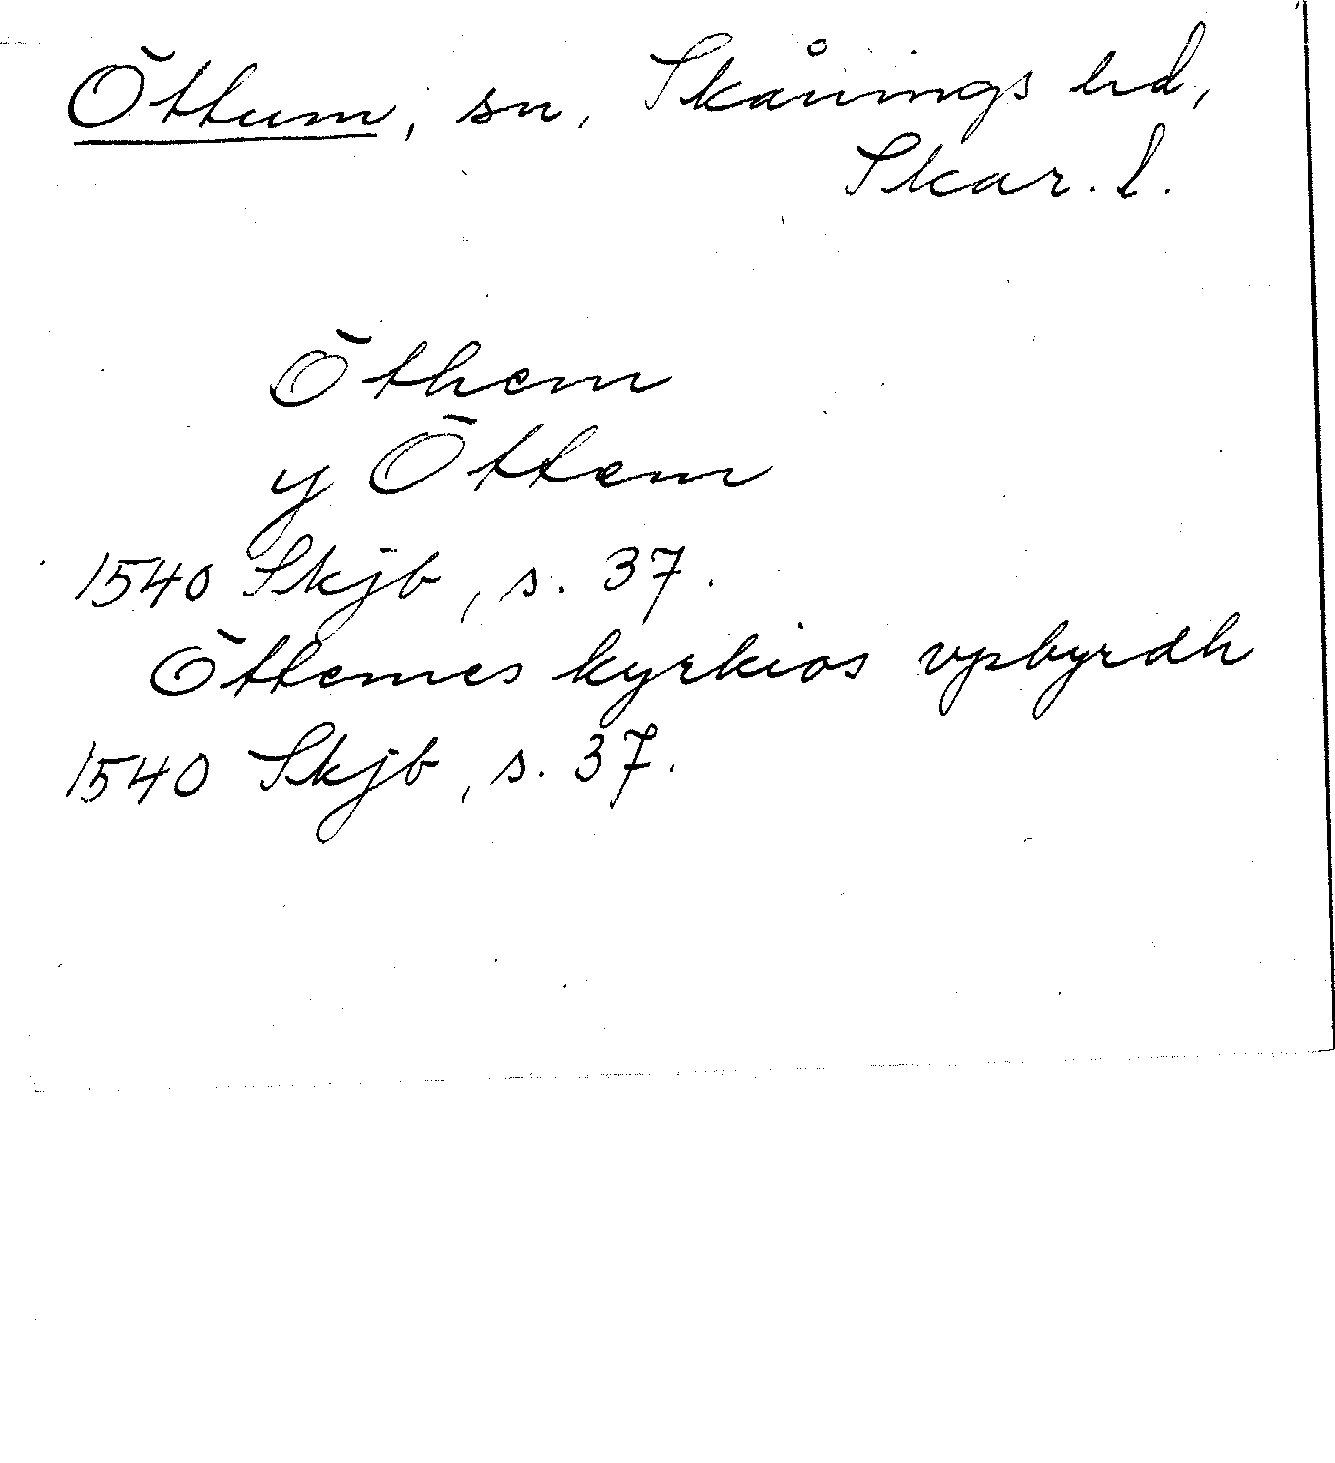 Öttum, sn, Skånings hd,
Skar. l.
Öthem
y Öttem
1540 Skjb, s. 37.
Öttemes kyrkios vpbyrdh
1540 Skjb, s. 37.